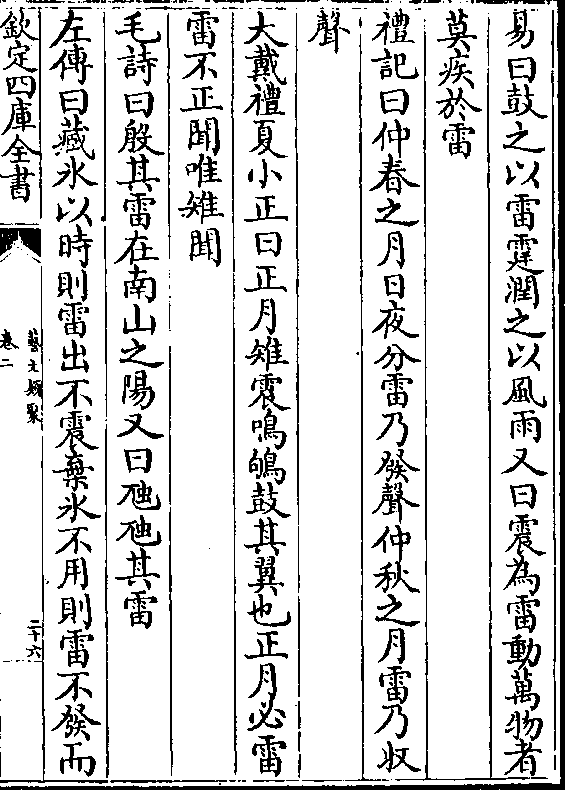 易曰鼓之以雷霆潤之以風雨又曰震為雷動萬物者
莫疾於雷
禮記曰仲春之月日夜分雷乃發聲仲秋之月雷乃收
聲
大戴禮夏小正曰正月雉震鳴鴝鼓其翼也正月必雷
雷不正聞唯雉聞
毛詩曰殷其雷在南山之陽又曰虺虺其雷
左傳曰藏氷以時則雷出不震棄氷不用則雷不發而
欽定四庫全書
藝文類聚
卷二
二十六